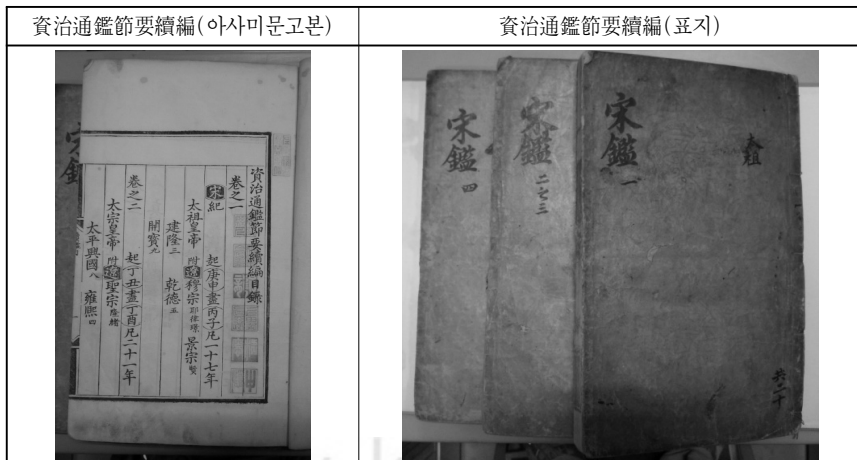 資治通鑑節要續編(아사미문고본)
資治通鑑節要續編(표지)
資治通鑑節要續編目錄
卷之一
宋紀 起庚申盡丙子凡一十七年
太祖皇帝 附遼穆宗 景宗賢
建隆三 乾德五
開寶九
卷之二 起丁丑盡丁酉凡二十一年
太宗皇帝 附遼聖宗隆緒
太平興國八 雍熙四
宋鑑
宋鑑 四
宋鑑 二七三
宋鑑 一
共二十